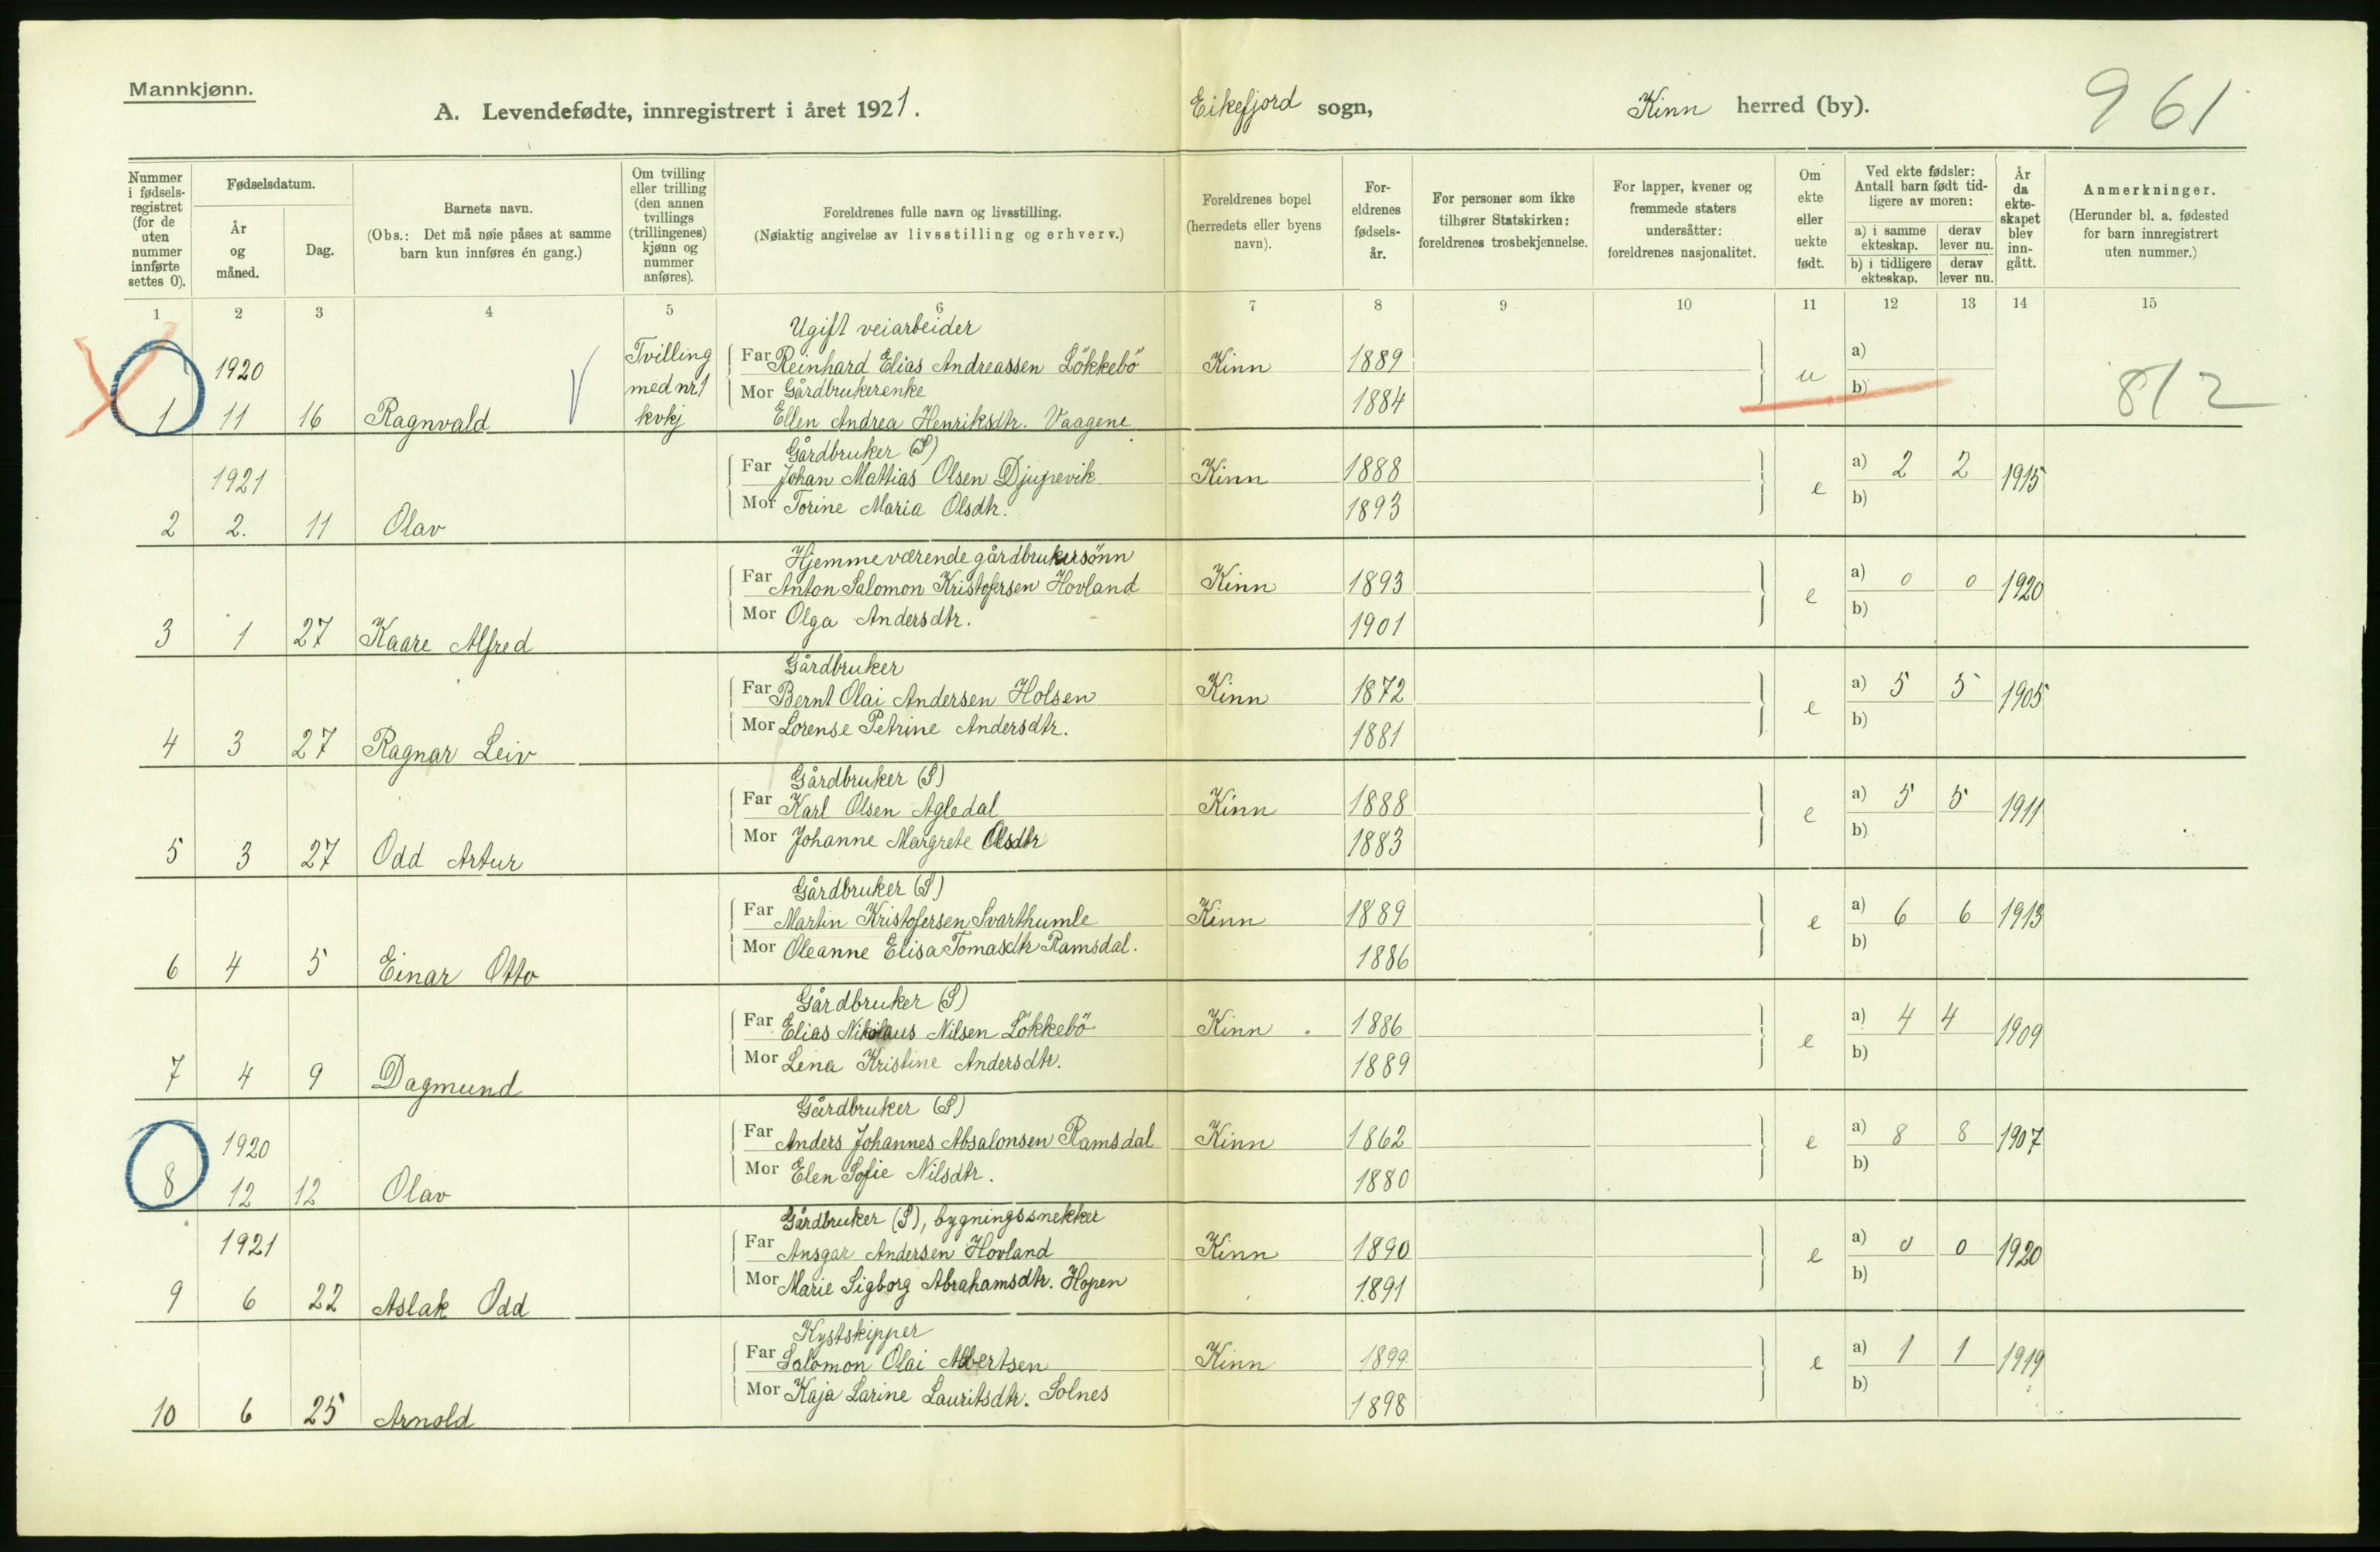 Mannkjønn.
A. Levendefødte, innregistrert i året 1921.
Eikefjord sogn,
Kinn herred (by).
961
Nummer i fødsels-registret (for de uten nummer innførte settes 0).
Fødselsdatum.
År og måned.
Dag.
Barnets navn.
(Obs.: Det må nøie påses at samme barn kun innføres én gang.)
Om tvilling eller trilling (den annen tvillings (trillingenes) kjønn og nummer anføres).
Foreldrenes fulle navn og livsstilling.
(Nøiaktig angivelse av livsstilling og erhverv.)
Foreldrenes bopel (herredets eller byens navn).
For-eldrenes fødsels-år.
For personer som ikke tilhører Statskirken: foreldrenes trosbekjennelse.
For lapper, kvener og fremmede staters undersåtter: foreldrenes nasjonalitet.
Om ekte eller uekte født.
Ved ekte fødsler: Antall barn født tid-ligere av moren:
a) i samme ekteskap. derav lever nu.
b) i tidligere ekteskap. derav lever nu.
År da ekte-skapet blev inn-gått.
Anmerkninger.
(Herunder bl. a. fødested for barn innregistrert uten nummer.)
1 2 3 4 5 6 7 8 9 10 11 12 13 14 15
Ugift veiarbeider
1920 Tvilling Far Reinhard Elias Andreassen Lökkebö Kinn 1889 u a)
med nr 1 Mor Gårdbrukerenke 1884 b)
1 11 16 Ragnvald V kvkj Ellen Andrea Henriksdtr. Vaagene 812
Gårdbruker (S)
1921 Far Johan Mattias Olsen Djupevik Kinn 1888 e a) 2 2 1915
Mor Torine Maria Olsdtr. 1893 b)
2 2. 11 Olav
Hjemmeværende gårdbrukersönn
Far Anton Salomon Kristofersen Hovland Kinn 1893 e a) 0 0 1920
Mor Olga Andersdtr. 1901 b)
3 1 27 Kaare Alfred
Gårdbruker
Far Bernt Olai Andersen Holsen Kinn 1872 e a) 5 5 1905
Mor Lorense Petrine Andersdtr. 1881 b)
4 3 27 Ragnar Leiv
Gårdbruker (S)
Far Karl Olsen Agledal Kinn 1888 e a) 5 5 1911
Mor Johanne Margrete Olsdtr 1883 b)
5 3 27 Odd Artur
Gårdbruker (S)
Far Martin Kristofersen Svarthumle Kinn 1889 e a) 6 6 1913
Mor Oleanne Elisa Tomasdtr Ramsdal. 1886 b)
6 4 5 Einar Otto
Gårdbruker (S)
Far Elias Nikolaus Nilsen Lökkebö Kinn 1886 e a) 4 4 1909
Mor Lena Kristine Andersdtr. 1889 b)
7 4 9 Dagmund
Gårdbruker (S)
1920 Far Anders Johannes Absalonsen Ramsdal Kinn 1862 e a) 8 8 1907
Mor Elen Sofie Nilsdtr. 1880 b)
8 12 12 Olav
Gårdbruker (S), bygningssnekker
1921 Far Ansgar Andersen Hovland Kinn 1890 e a) 0 0 1920
Mor Marie Sigborg Abrahamsdtr. Hopen 1891 b)
9 6 22 Aslak Odd
Kystskipper
Far Salomon Olai Albertsen Kinn 1899 e a) 1 1 1919
Mor Kaja Larine Lauritsdtr. Solnes 1898 b)
10 6 25 Arnold